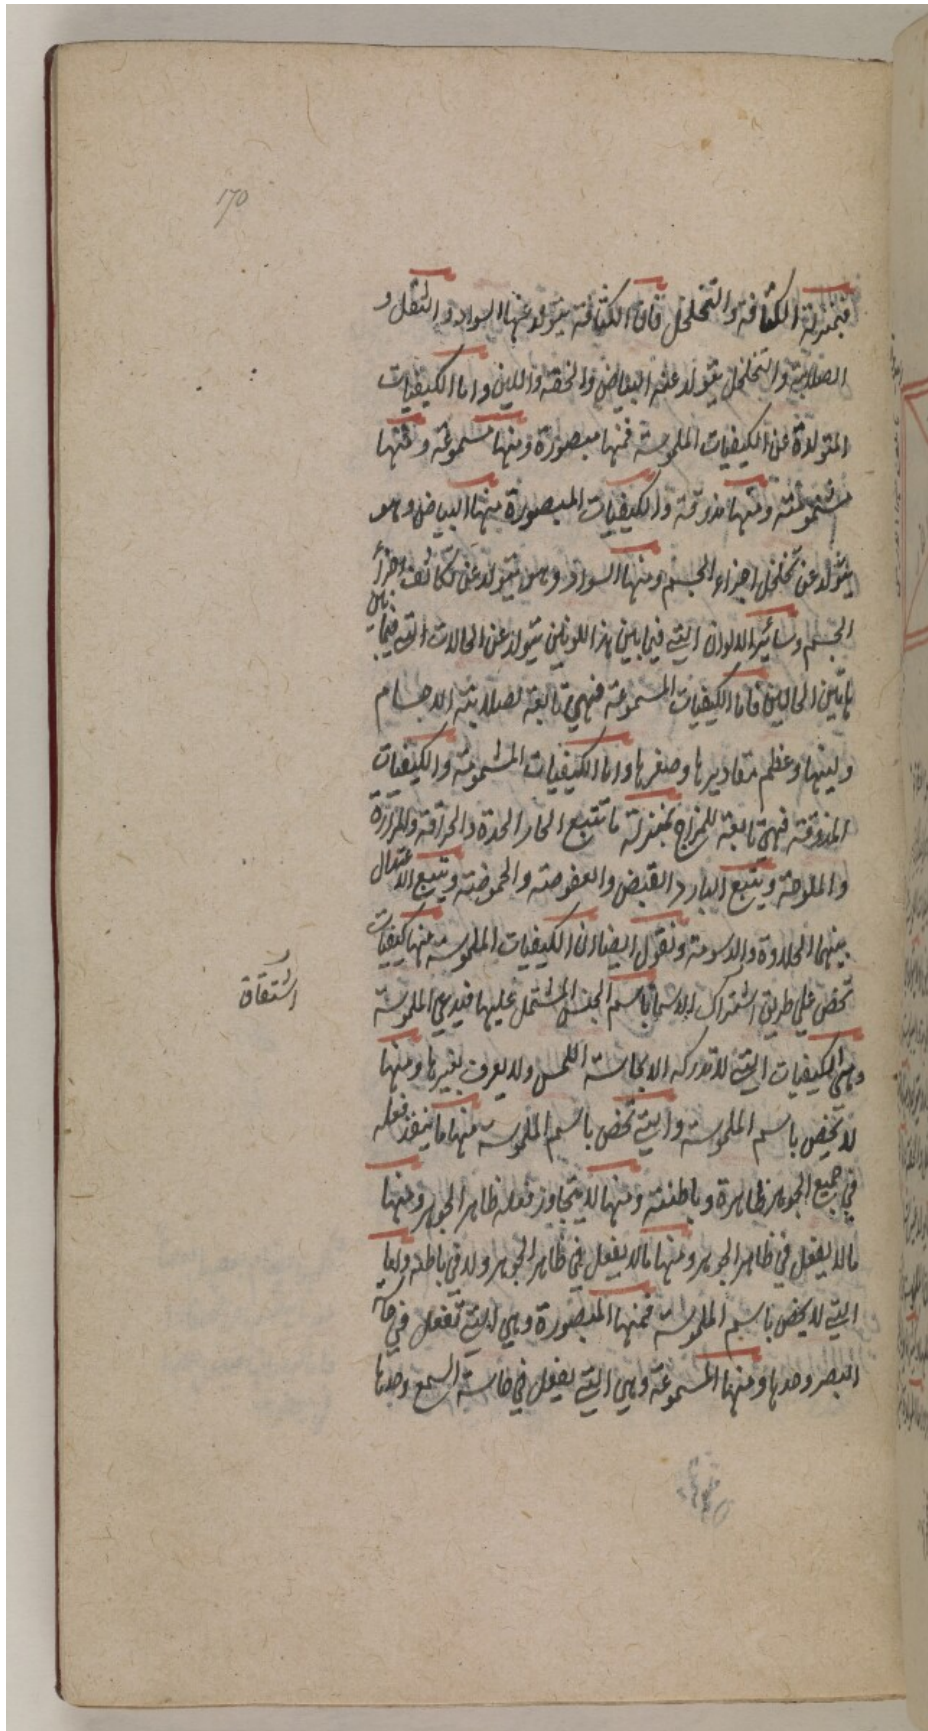 170
فبمنزلة الكثافة والتخلخل فان الكثافة يتولد عنها السواد والثقل و
الصلابة والتخلخل يتولد عنه البياض والخفة واللين واما الكيفيات
المتولدة عن الكيفيات الملموسة فمنها مبصورة ومنها مسموعة ومنها
مشمومة ومنها مذوقة والكيفيات المبصورة منها البياض وهو
يتولد عن تخلخل اجزاء الجسم ومنها السواد وهو يتولد عن تكاثف اجزأ
الجسم وسائر الالوان التي فيما بين هذا اللونين يتولد عن الحالات التي فيما بين
هاتين الحالين فاما الكيفيات المسموعة فهي تابعة لصلابة الاجسام
ولينها وعظم مقاديرها وصغرها واما الكيفيات المشمومة والكيفيات
المذوقة فهي تابعة للمزاج بمنزلة ما يتبع الحار الحدة والحرافة والمرارة
والملوحة ويتبع البارد القبض والعفوصة والحموضة ويتبع الاعتدال
بينهما الحلاوة والدسومة ونقول ايضا ان الكيفيات الملموسة منها كيفيات
تخص علي طريق اشتراك الاسما باسم الجنس المشتمل عليها فيدعي الملموسة
وهي الكيفيات التي لا تدركه الا بحاسة اللمس ولا يعرف بغيرها ومنها
لا تخص باسم الملموسة والتي تخص باسم الملموسة منها ما ينفذ فعله
في جميع الجوهر ظاهرة وباطنته ومنها لا يتجاوز فعله ظاهر الجوهر ومنها
ما لا يفعل في ظاهر الجوهر ومنها ما لا يفعل في ظاهر الجوهر ولا في باطنه واما
التي لا يخص باسم الملموسة فمنها المبصورة وهي التي تفعل في حاسة
البصر وحدها ومنها المسموعة وهي التي يفعل في حاسة السمع وحدها
اشتقاق